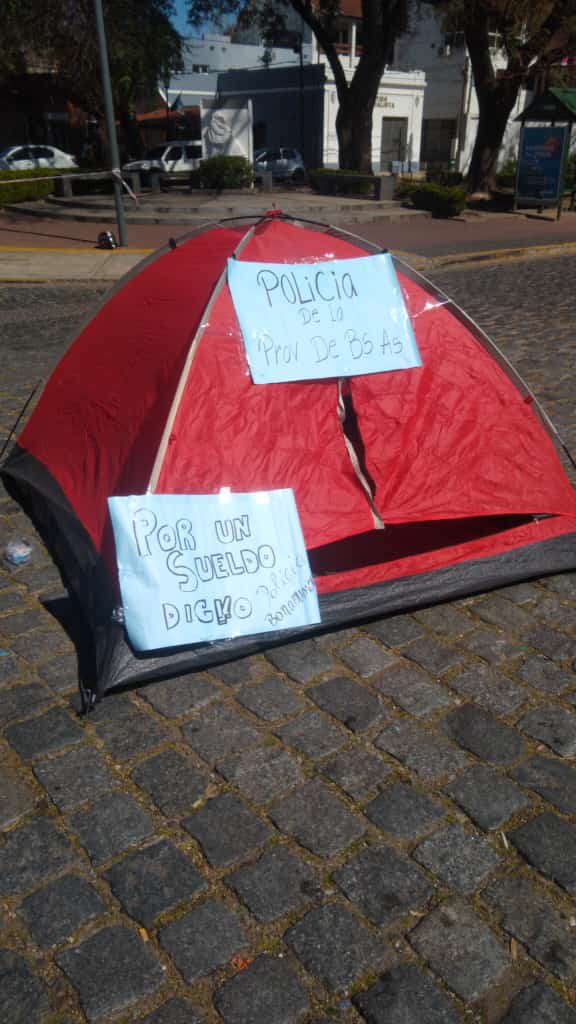 POLiCia
De la
Prov De BS AS
POR UN
SUELDO
DIGNO
Policia